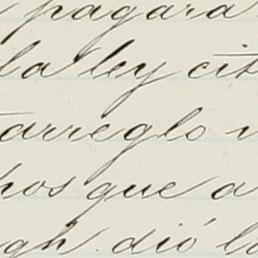 pagara
la ley cit
arreglo
hos que a
gh. dió la